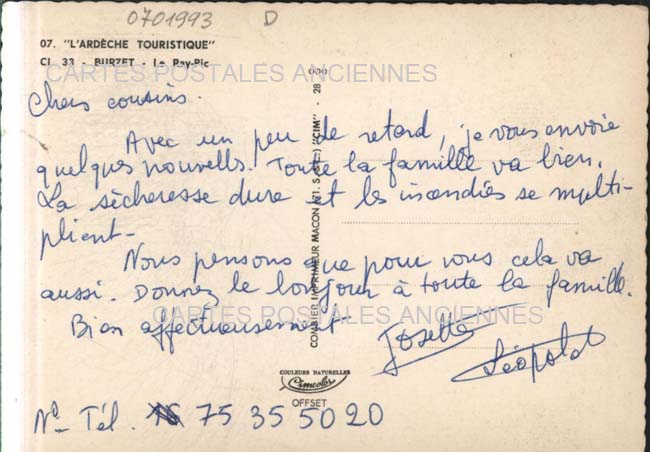 0701993 D
07. "L'ARDÈCHE TOURISTIQUE"
CL 33 - BURZET - Le Ray-Pic
CARTES POSTALES ANCIENNES
Chers cousins.
Avec un peu de retard, je vous envoie
quelques nouvelles. Toute la famille va bien.
La sècheresse dure et les incendies se multi-
plient-
Nous pensons que pour vous cela va
aussi. Donnez le bonjour à toute la famille.
CARTES POSTALES ANCIENNES
Bien affectueusement
Josette
Léopold
COMBIER IMPRIMEUR MACON (71. S.-&-L.) "CIM" - 28
COULEURS NATURELLES
Cimcolor
OFFSET
No Tél. 16 75 35 50 20